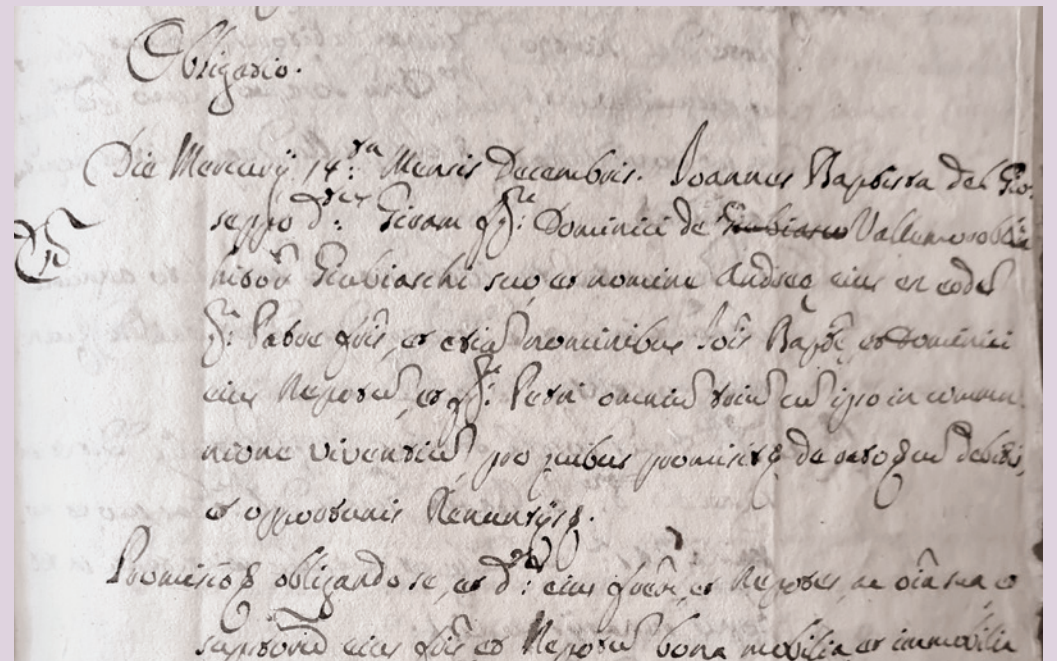 Obligatio.
Die Mercurÿ 14:ta Mensis Decembris. Joannes Baptista del Gio-
seppo d:
q: Dominici de Giubiasco Vallemorobbia
Giubiaschi suo, et nomine Andreę eius ex eodē
q: Patre fris, et etiā nominibus Jois Baptę, et Dominici
eius Nepotū, et q: Petri omniū triū cū ipso in commu-
nione viventiū, pro quibus promisit & de rato & cū debitis,
et opportunis Renuntÿs &.
Promisit & obligando se, et d: eius frēm, et Nepotes, ac oīa sua et
eius fris et Nepotū bona mobilia et immobilia